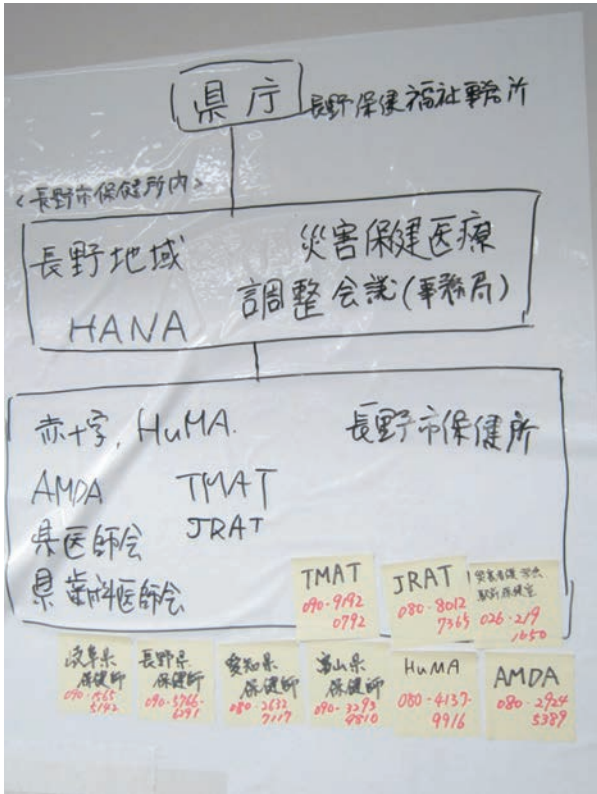 県庁
長野保健福祉事務所
<長野市保健所内>
長野地域
災害保健医療
調整会議(事務局)
HANA
赤十字, HuMA.
長野市保健所
AMDA
TMAT
県医師会
JRAT
県歯科医師会
TMAT
090-9192
0792
JRAT
080-8012
7365
026-219
1650
岐阜県
保健師
090-1565
5142
長野県
保健師
090-5766-
6291
愛知県
保健師
080-2632
7117
富山県
保健師
090-3293
9810
HuMA
080-4137-
9916
AMDA
080-2924
5389